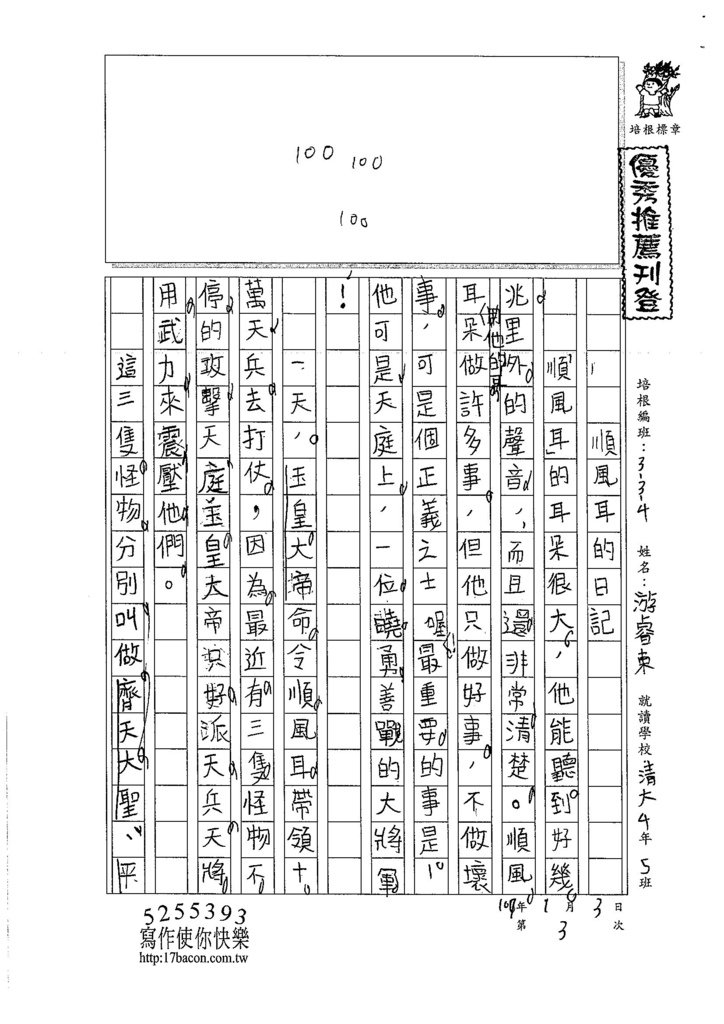 100 100
100
培根標章
優秀推薦刊登
培根編班：3-3-4 姓名：游睿東 就讀學校 清大 4年 5班
109年 1月 3日
第 3 次
順風耳的日記
順風耳的耳朵很大，他能聽到好幾
兆里外的聲音，而且還非常清楚。順風
耳用他的耳朵做許多事，但他只做好事，不做壞
事，可是個正義之士喔！最重要的事是
他可是天庭上，一位驍勇善戰的大將軍
！
一天，玉皇大帝命令順風耳帶領十
萬天兵去打仗，因為最近有三隻怪物不
停的攻擊天庭玉皇大帝只好派天兵天將
用武力來震壓他們。
這三隻怪物分別叫做齊天大聖、平
5255393
寫作使你快樂
http:17bacon.com.tw